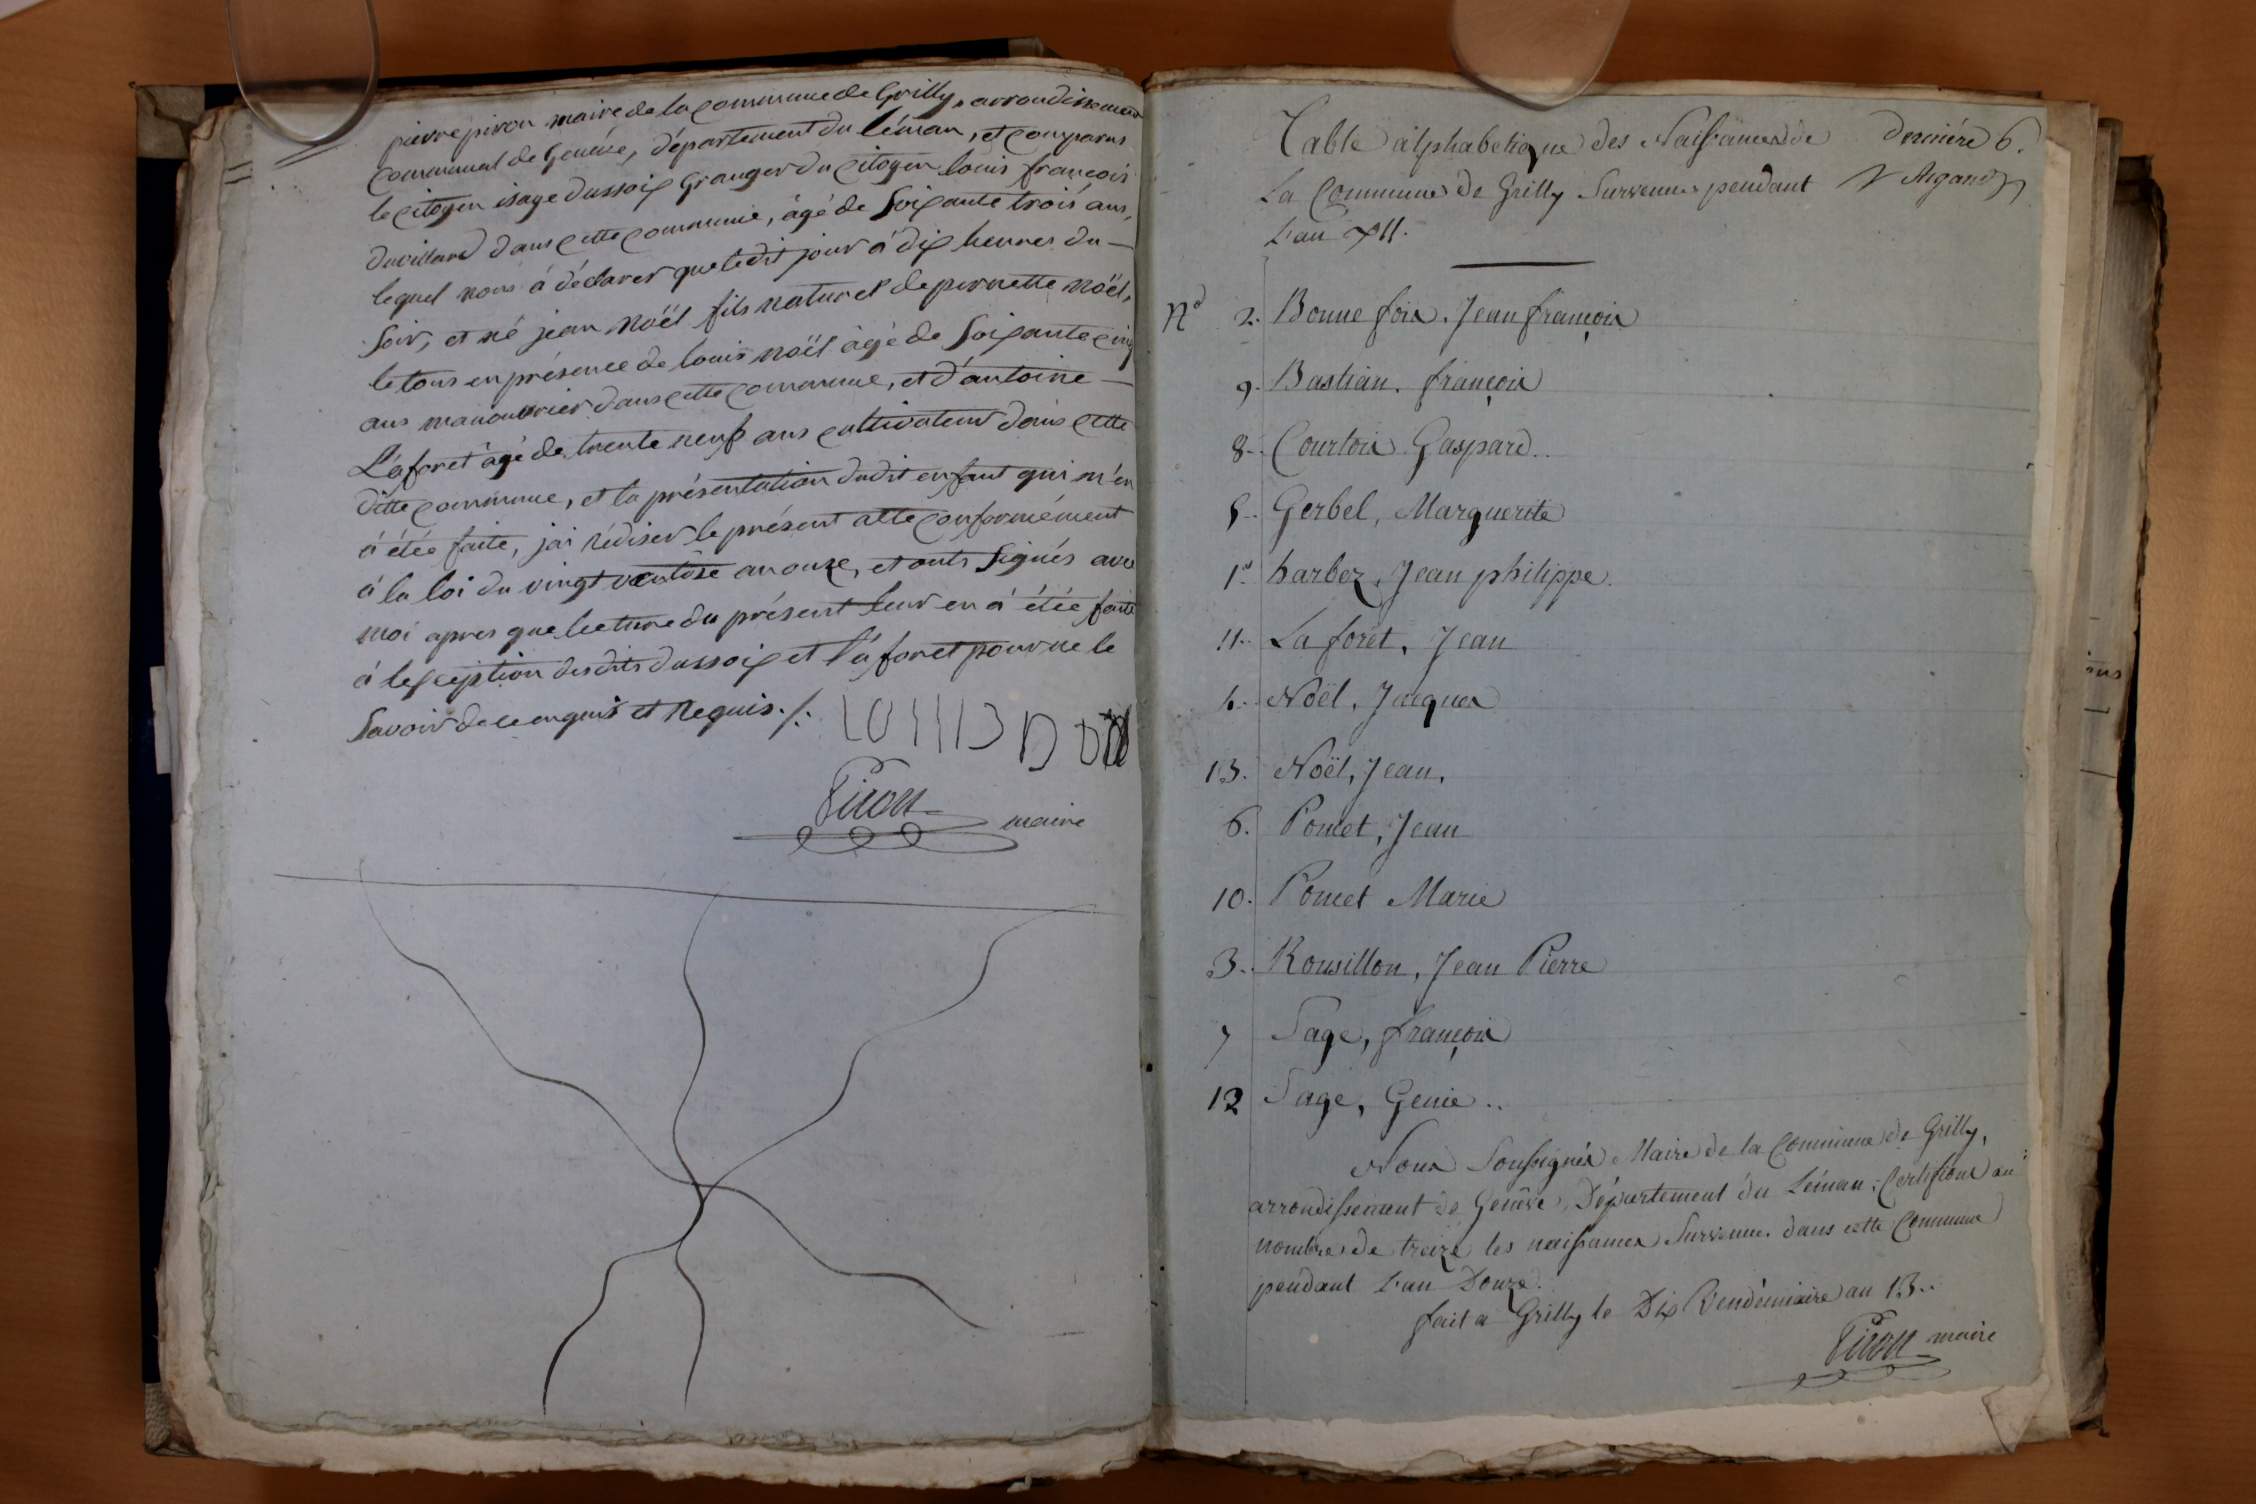 pierre piron maire de la commune de Grilly, arrondissement
communal de Genève, département du léman, et comparus
le citoyen isaye dussoix Granger du citoyen louis françois
duvillard dans cette commune, âgé de soixante trois ans,
lequel nous à déclarer que ledit jour à dix heures du —
soir, et né jean noël fils naturel de pernette noël,
le tous en présence de louis noël âgé de soixante cinq
ans manouvrier dans cette commune, et d'antoine —
Láforet âgé de trente neuf ans cultivateur dans cette
ditte commune, et la présentation dudit enfant qui m'en
à étée faite, jai rédiser le présent acte conformément
à la loi du vingt ventôse an onze, et onts signés avec
moi apres que lecture du présent leur en à étée faite
à lexception desdits dussoix et láforet pour ne le
savoir de ce enquis et Requis ./.
Piron maire
Table alphabetique des Naissances de
La Commune de Grilly Survenues pendant
L'an XII.
derniére 6.
Argand
No 2. Bonne foix. Jean françois
9. Bastian. françois
8. Courtois Gaspard..
5. Gerbel, Marguerite
1. harbez, Jean philippe.
11. La foret, Jean
4. Noël, Jacques
13. Noël, Jean,
6. Poncet, Jean
10. Poncet Marie
3. Rousillon, Jean Pierre
7 Sage, françois
12 Sage, Genie..
Nous Soussignés Maire de la Commune de Grilly,
arrondissement de Genève, Département du Léman; Certifions au
nombre de treize les naissances Survenues dans cette Commune
pendant L'an Douze.
fait a Grilly le Dix Vendémiaire an 13..
Piron maire